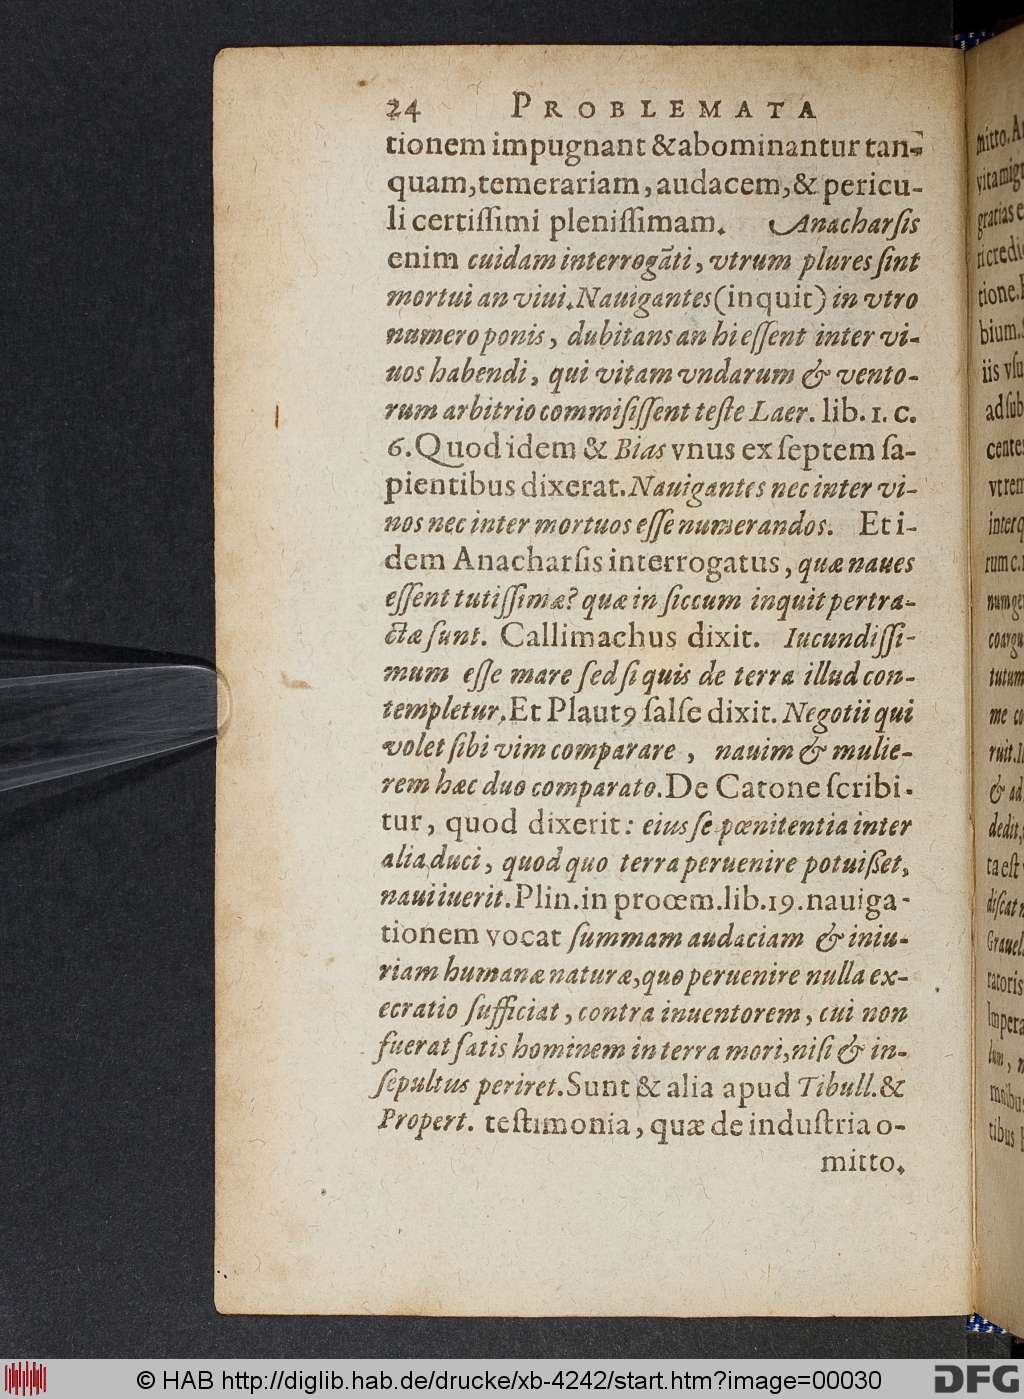 24 PROBLEMATA
tionem impugnant & abominantur tan-
quam, temerariam, audacem, & pericu-
li certiſſimi pleniſſimam. Anacharſis
enim cuidam interrogāti, vtrum plures ſint
mortui an viui. Nauigantes (inquit) in vtro
numero ponis, dubitans an hi eſſent inter vi-
uos habendi, qui vitam vndarum & vento-
rum arbitrio commiſiſſent teſte Laer. lib. 1. c.
6. Quod idem & Bias vnus ex ſeptem ſa-
pientibus dixerat. Nauigantes nec inter vi-
nos nec inter mortuos eſſe numerandos. Et i-
dem Anacharſis interrogatus, quæ naues
eſſent tutiſſimæ? quæ in ſiccum inquit pertra-
ctæ ſunt. Callimachus dixit. Iucundiſſi-
mum eſſe mare ſed ſi quis de terra illud con-
templetur. Et Plautꝰ ſalſe dixit. Negotii qui
volet ſibi vim comparare, nauim & mulie-
rem hæc duo comparato. De Catone ſcribi-
tur, quod dixerit: eius ſe pœnitentia inter
alia duci, quod quo terra peruenire potuißet,
naui iuerit. Plin. in procem. lib. 19. nauiga-
tionem vocat ſummam audaciam & iniu-
riam humanæ naturæ, quo peruenire nulla ex-
ecratio ſufficiat, contra inuentorem, cui non
fuerat ſatis hominem in terra mori, niſi & in-
ſepultus periret. Sunt & alia apud Tibull. &
Propert. teſtimonia, quæ de induſtria o-
mitto.
© HAB http://diglib.hab.de/drucke/xb-4242/start.htm?image=00030
DFG